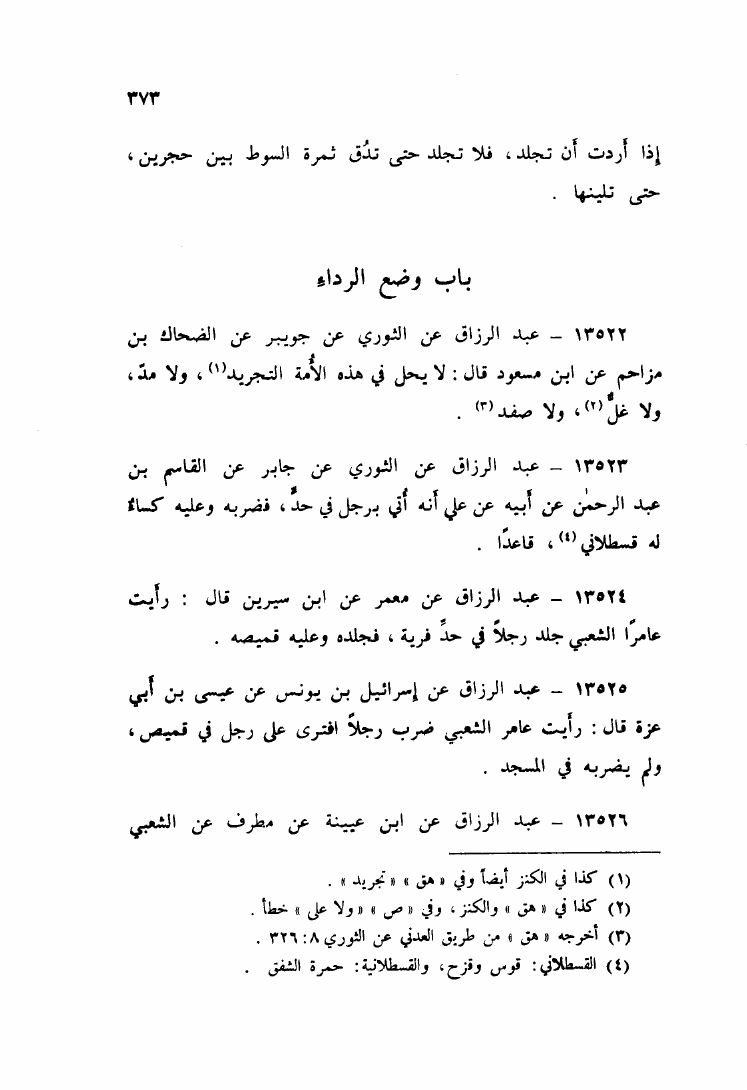 ٣٧٣
إِذا أَردت أَن تجلد، فلا تجلد حتى تدُق ثمرة السوط بين حجرين،
حتى تلينها .
باب وضع الرداء
١٣٥٢٢ – عبد الرزاق عن الثوري عن جويبر عن الضحاك بن
مزاحم عن ابن مسعود قال : لا يحل في هذه الأُمة التجريد(١)، ولا مدّ،
ولا غلٌّ(٢)، ولا صفد(٣) .
١٣٥٢٣ – عبد الرزاق عن الثوري عن جابر عن القاسم بن
عبد الرحمٰن عن أَبيه عن علي أَنه أُتي برجل في حدٍّ، فضربه وعليه كساءٌ
له قسطلاني(٤)، قاعدًا .
١٣٥٢٤ – عبد الرزاق عن معمر عن ابن سيرين قال : رأَيت
عامرًا الشعبي جلد رجلاً في حدِّ فرية ، فجلده وعليه قميصه .
١٣٥٢٥ – عبد الرزاق عن إِسرائيل بن يونس عن عيسى بن أَبي
عزة قال : رأَيت عامر الشعبي ضرب رجلاً افترى على رجل في قميص،
ولم يضربه في المسجد .
١٣٥٢٦ – عبد الرزاق عن ابن عيينة عن مطرف عن الشعبي
(١) كذا في الكنز أيضاً وفي « هق » « تجريد » .
(٢) كذا في « هق » والكنز ، وفي « ص » « ولا على » خطأ .
(٣) أخرجه « هق » من طريق العدني عن الثوري ٨ : ٣٢٦ .
(٤) القسطلاني : قوس وقزح، والقسطلانية : حمرة الشفق .